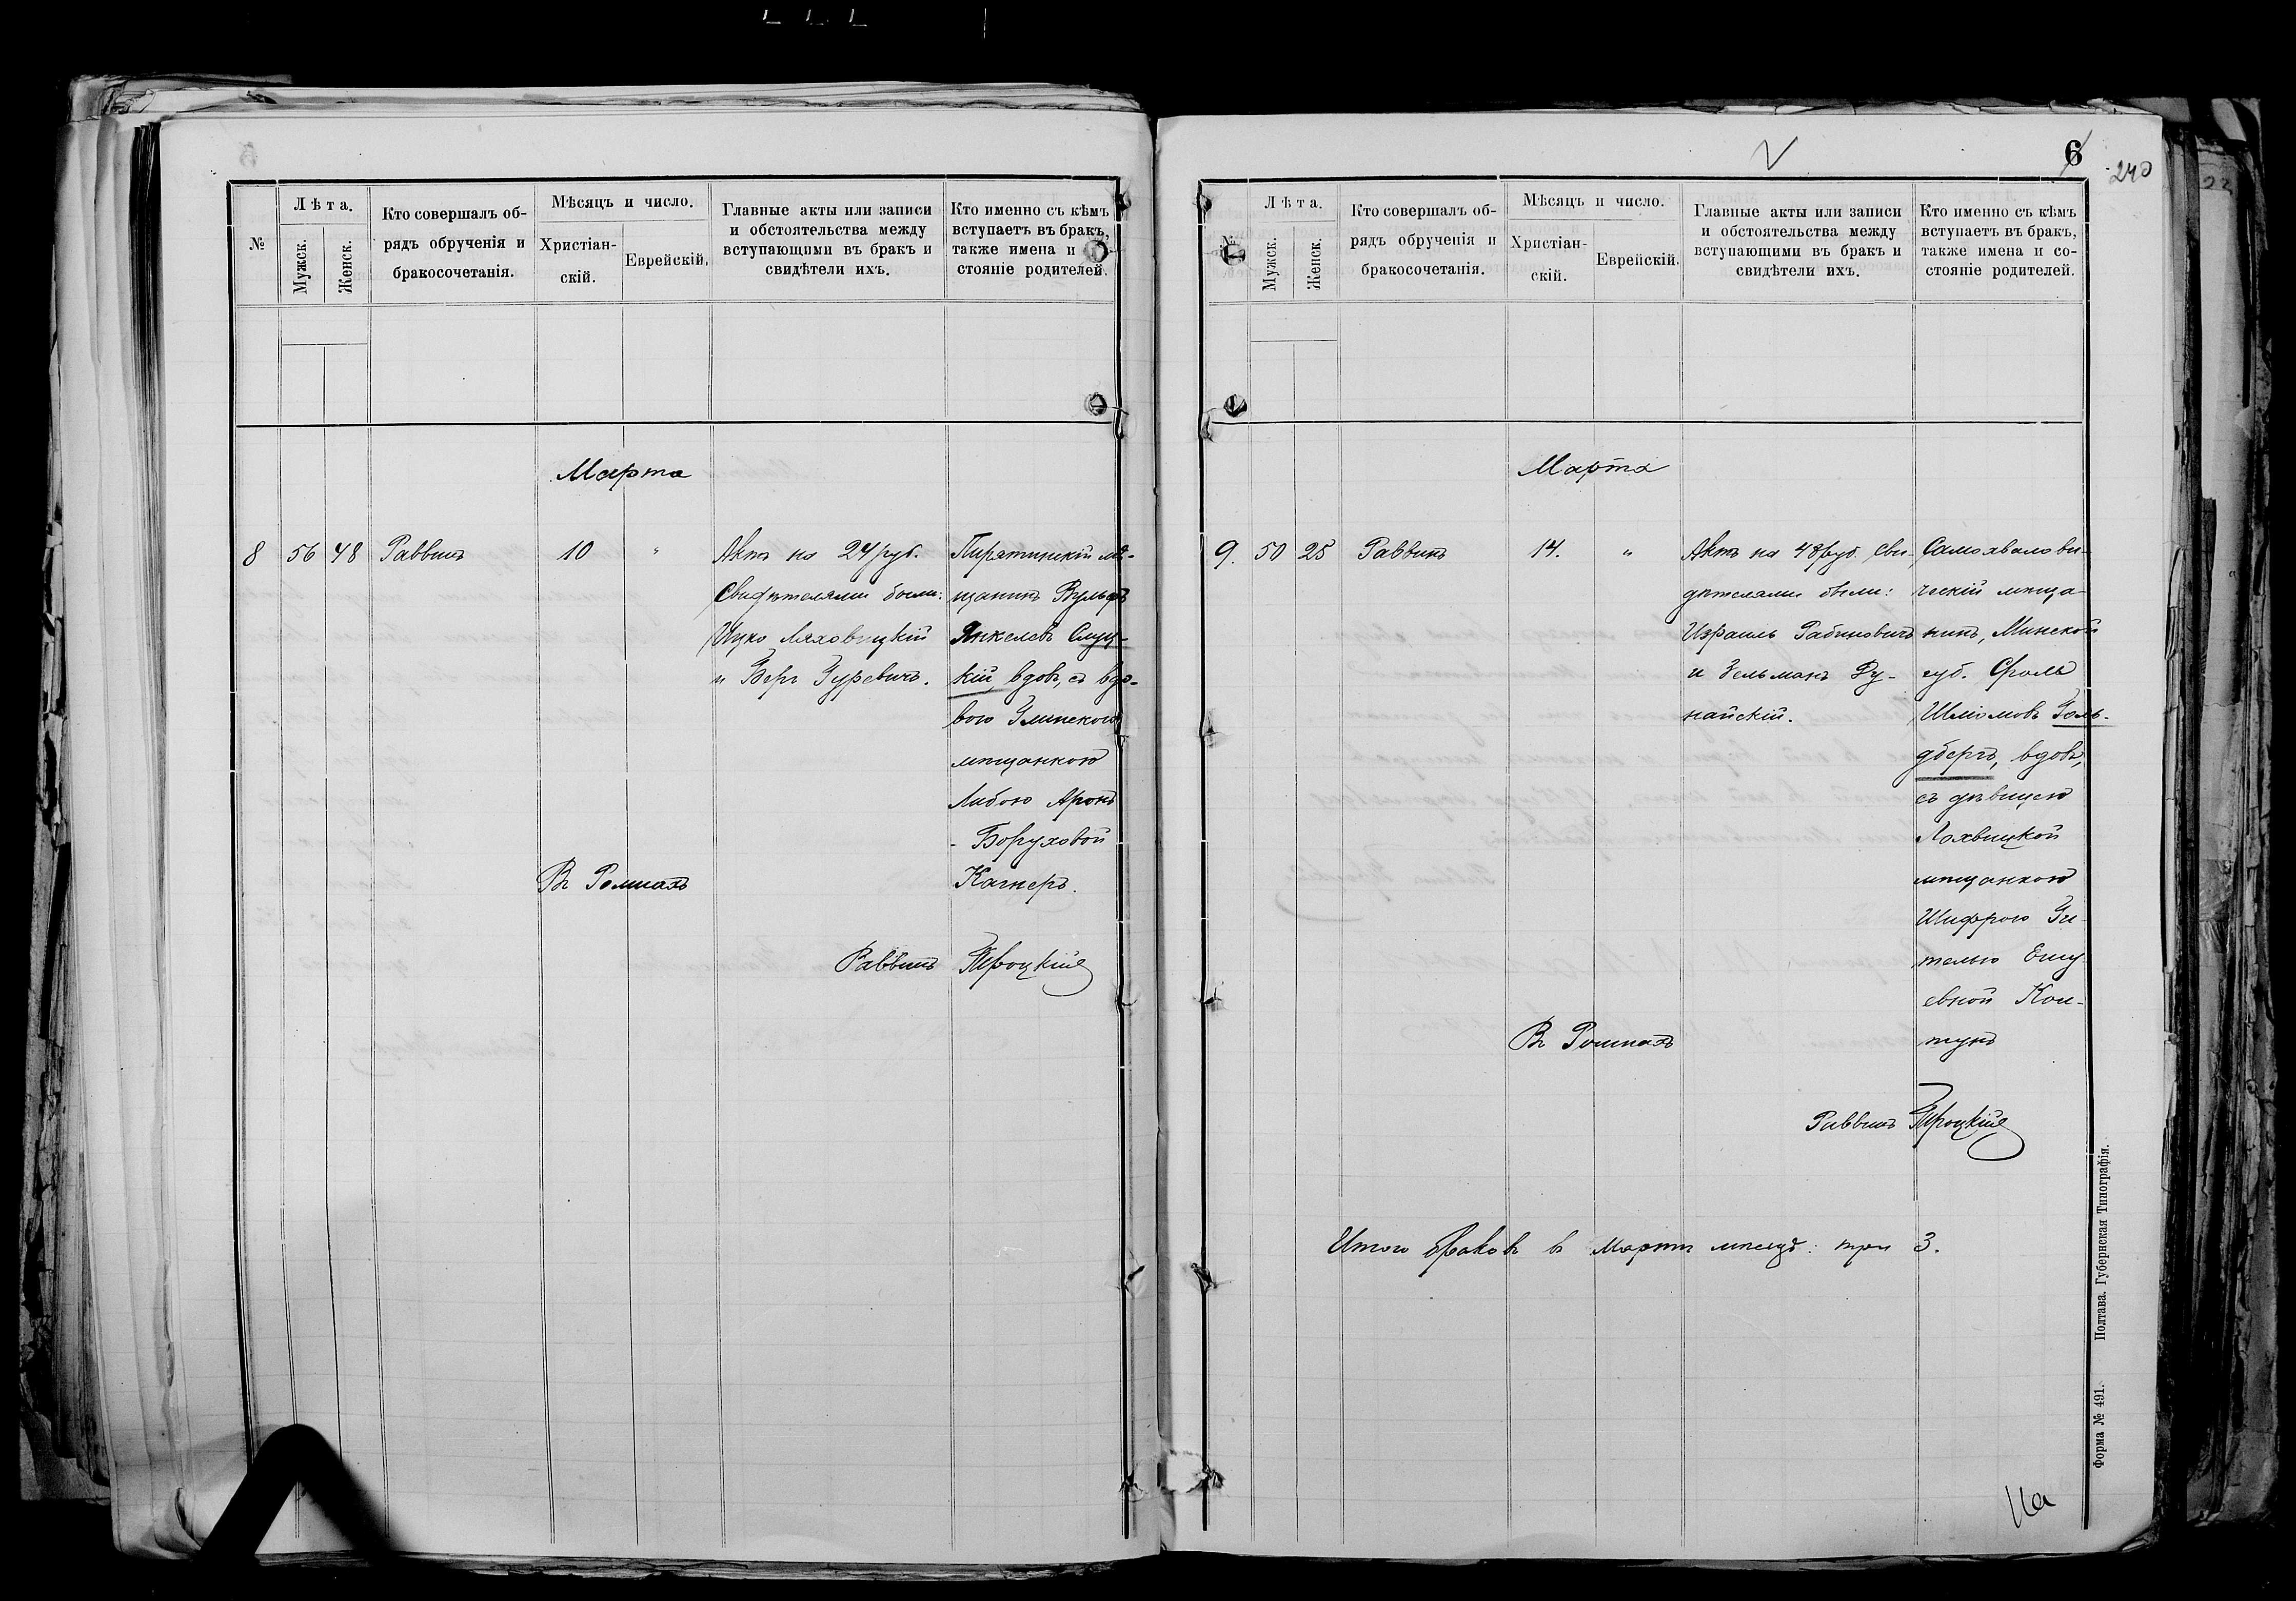 №
Лѣта.
Мужск.
Женск.
Кто совершалъ об-
рядъ обрученія и
бракосочетанія.
Мѣсяцъ и число.
Христіан-
скій.
Еврейскій.
Главные акты или записи
и обстоятельства между
вступающими въ бракъ и
свидѣтели ихъ.
Кто именно съ кѣмъ
вступаетъ въ бракъ,
также имена и со-
стояніе родителей.
Марта
8 56 48 Раввинъ 10 "
Актъ на 24 руб.
Свидѣтелями были:
Ицко Ляховицкій
и Беръ Гуревичъ.
Пирятинскій мѣ-
щанинъ Вульфъ
Янкелевъ Слуц-
кій, вдов., съ вдо-
вою Глинскою
мѣщанкою
Либою Аронъ
-Боруховой
Кагнеръ.
Въ Ромнахъ
Раввинъ Троцкій
6
240
Лѣта.
Мужск.
Женск.
Кто совершалъ об-
рядъ обрученія и
бракосочетанія.
Мѣсяцъ и число.
Христіан-
скій.
Еврейскій.
Главные акты или записи
и обстоятельства между
вступающими въ бракъ и
свидѣтели ихъ.
Кто именно съ кѣмъ
вступаетъ въ бракъ,
также имена и со-
стояніе родителей.
Марта
9. 50 25 Раввинъ 14. "
Актъ на 48 руб. Сви-
дѣтелями были:
Израиль Рабиновичъ
и Зельманъ Ду-
найскій.
Самохвалови-
ческій мѣща-
нинъ, Минской
губ. Фроль
Шліомовъ Голь-
дбергъ, вдовъ,
съ дѣвицею
Лохвицкой
мѣщанкою
Шифрою Ги-
телью Евшу-
евной Кол-
тунъ
Въ Ромнахъ
Раввинъ Троцкій
Итого браковъ въ Мартѣ мѣсяцѣ: три 3.
Форма № 491. Полтава. Губернская Типографія.